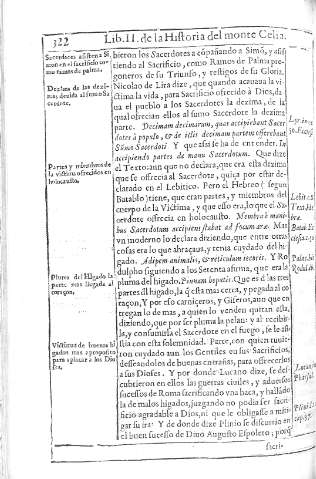 322 Lib. II. de la Historia del monte Celia.
bieron los Sacerdotes acōpañando a Simō, y assi
tiendo al Sacrificio, como Ramos de Palma pre-
goneros de su Triunfo, y testigos de su Gloria.
Nicolao de Lira dize, que quando acauaua la vi-
ctima la vida, para Sacrificio ofrecido à Dios, da
ua el pueblo a los Sacerdotes la dezima, de la
qual ofrecian ellos al sumo Sacerdote la dezima
parte. Decimam decimarum, quas accipiebant Sacer-
dotes à populo, & de illis decimam partem offerebant
Sūmo Sacerdoti Y que assi se ha de entender. In
accipiendo partes de manu Sacerdotum. Que dize
el Texto: aun que no declara, que era esta dezima
que se ofrecia al Sacerdote, quiça por estar de-
clarado en el Lebitico. Pero el Hebreo (segun
Batablo) tiene, que eran partes, y miembros del
cuerpo de la Victima, y que esso era, lo que el Sa-
cerdote ofrecia en holocausto. Membra è mani-
bus Sacerdotum accipiens stabat ad focum aræ. Mas
vn moderno lo declara diziendo, que entre otras
cosas era lo que abraçaua, y tenia cuydado del hi-
gado. Adipem animalis, & reticulum iecoris. Y Ro
dulpho siguiendo a los Setenta afirma, que era la
pluma del higado. Pinnam hepatis. Que es la tres
partes dl higado, la q̄ està mas cerca, y pegada al co
raçon, Y por esso carniceros, y Giferos, aun que en
tregan lo de mas, a quien lo venden quitan esta,
diziendo, que por ser pluma la pelan: y al recibir-
la, y consumilla el Sacerdote en el fuego, se le assi
stia con esta solemnidad. Parte, con quien tuuie-
ron cuydado aun los Gentiles en sus Sacrificios,
desseandolos de buenas entrañas, para ofrecerlos
a sus Dioses. Y por donde Lucano dize, se des-
cubrieron en ellos las guerras ciuiles, y aduersos
sucessos de Roma sacrificando vna baca, y hallādo
la de malos higados, juzgando no podia ser sacri-
ficio agradable a Dios, ni que le obligasse a miti-
gar su ira. Y de donde dize Plinio se discurrio en
el buen sucesso de Dino Augusto Espoleto, porq̄
sacri-
Sacerdotes
al sacrificio co-
mo ramos de palma.
Dezima de las dezi-
mas, deuida al sumo Sa-
cerdote.
Partes y miembros de
la victima ofrecidos en
holocausto.
Pluma del Higado la
parte mas llegada al
coraçon.
Victimas de buenos hi-
gados mas a proposito
para aplacar a los Dio
ses.